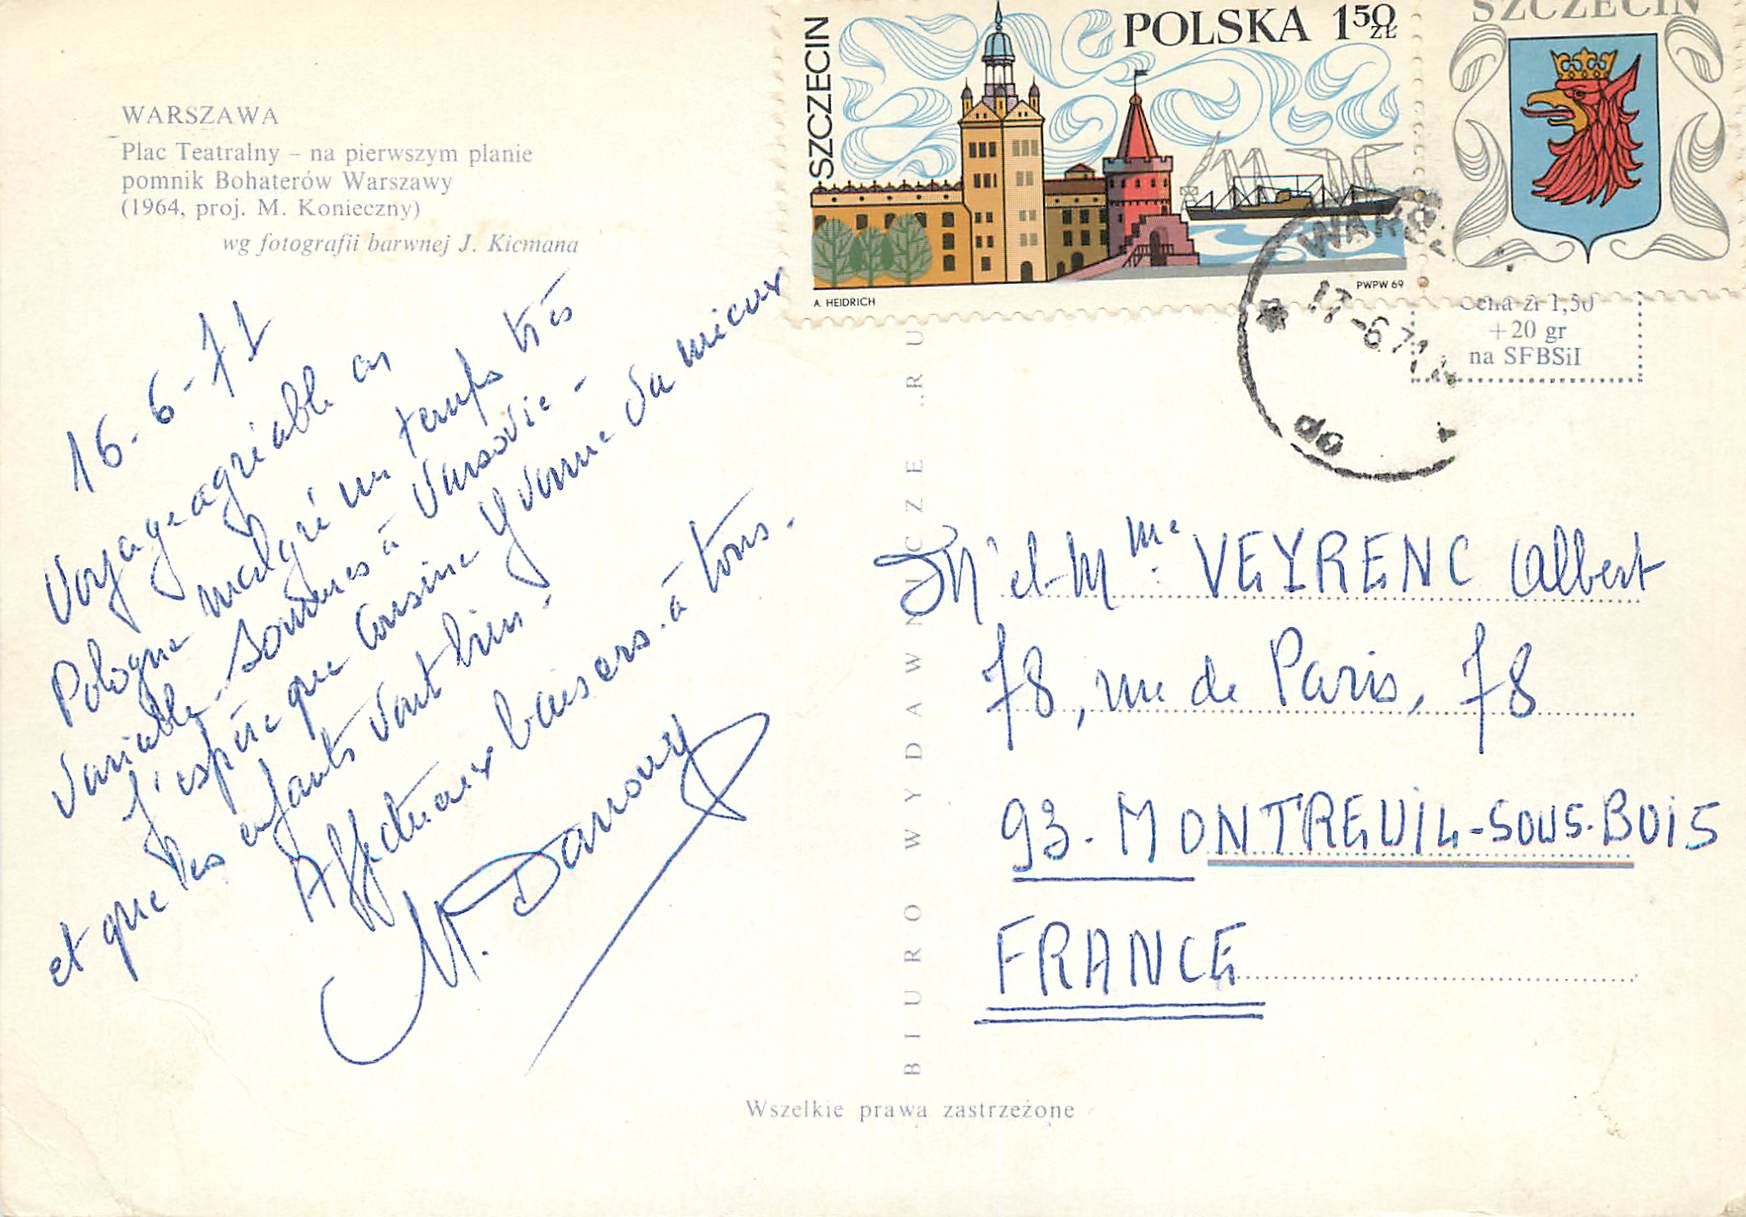 WARSZAWA
Plac Teatralny – na pierwszym planie
pomnik Bohaterów Warszawy
(1964, proj. M. Konieczny)
wg fotografii barwnej J. Kicmana
16-6-71
Voyage agréable en
Pologne malgré un temps très
variable, sommes à Varsovie -
J'espère que Cousine Yvonne va mieux
et que les enfants vont bien.
Affectueux baisers à tous.
SZCZECIN
POLSKA 1 50 ZŁ
A. HEIDRICH
PWPW 69
SZCZECIN
17-6.71
Cena zł 1,50
+20 gr
na SFBSiI
BIURO WYDAWNICZE „RU
Mr et Mme VEYRENC Albert
78, rue de Paris, 78
93-MONTREUIL-SOUS-BOIS
FRANCE
Wszelkie prawa zastrzeżone